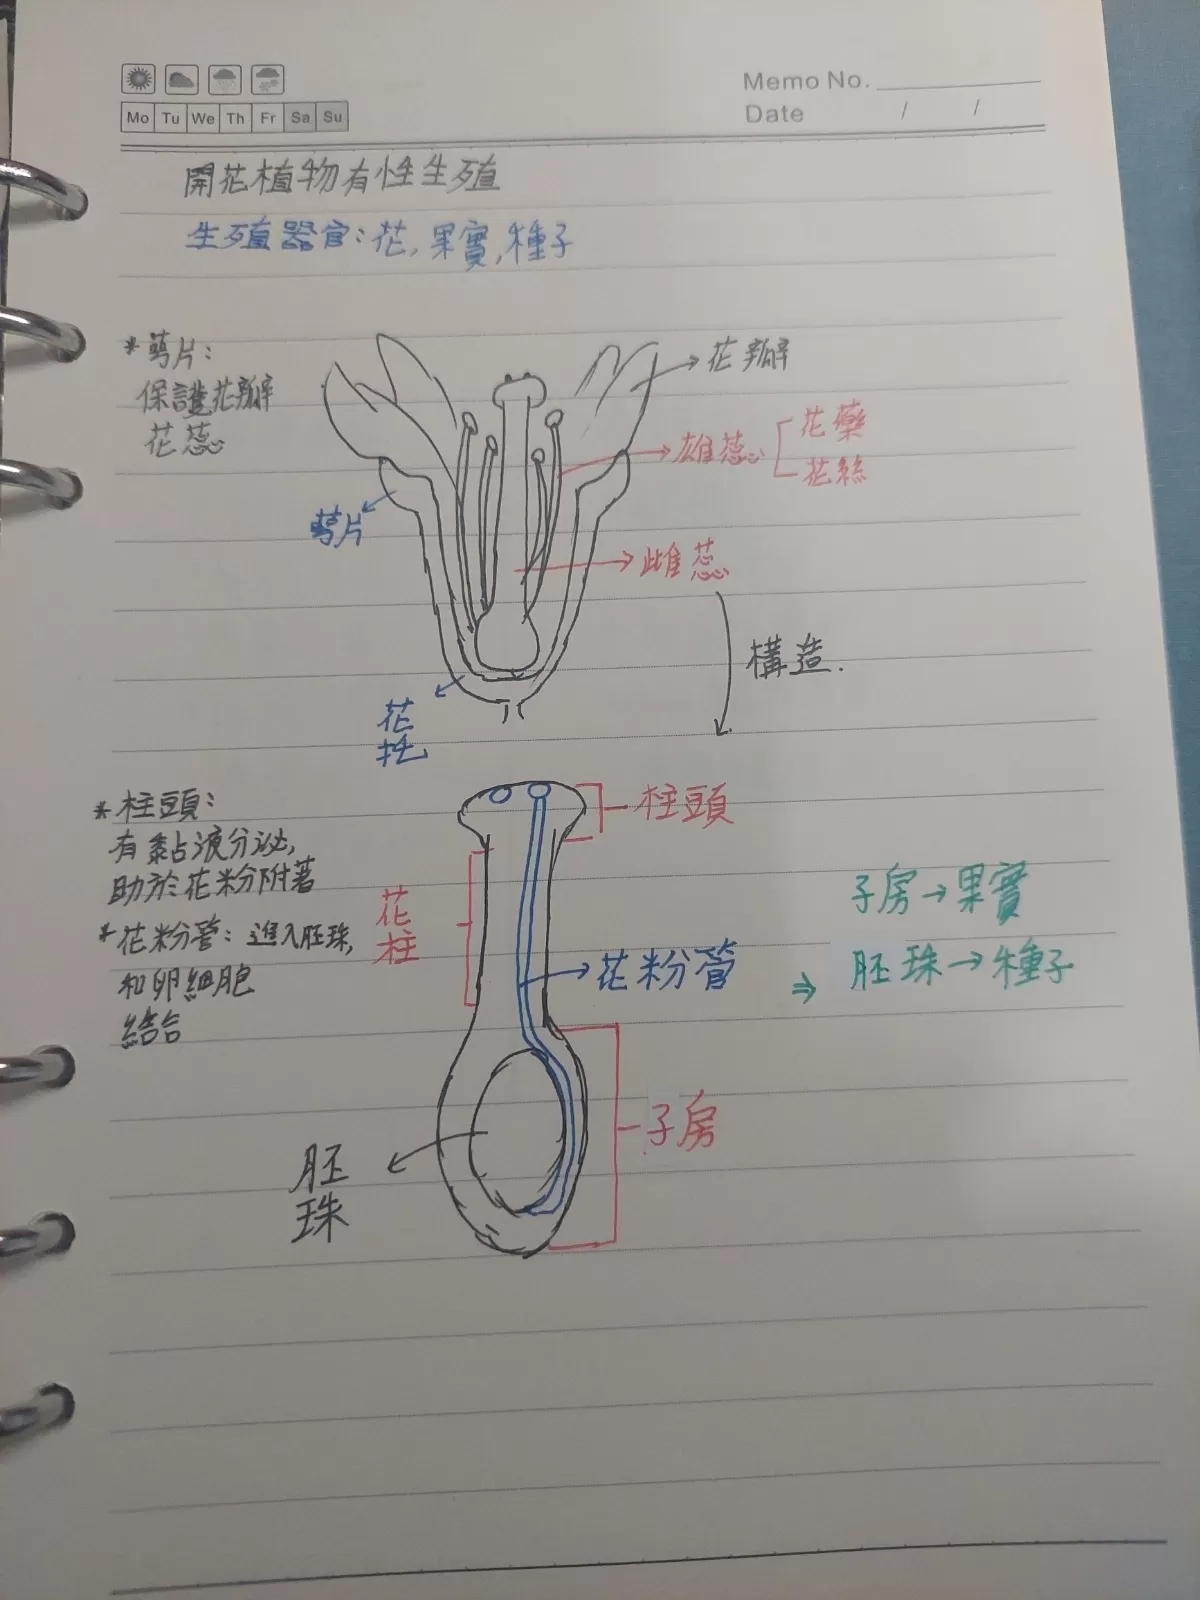 Memo No.
Mo Tu We Th Fr Sa Su
Date / /
開花植物有性生殖
生殖器官:花,果實,種子
*萼片:
保護花瓣
花蕊
花瓣
雄蕊
花藥
花絲
萼片
雌蕊
構造.
花
托
*柱頭:
有黏液分泌,
助於花粉附著
*花粉管:進入胚珠,
和卵細胞
結合
柱頭
花
柱
花粉管
子房→果實
⇒ 胚珠→種子
子房
胚
珠